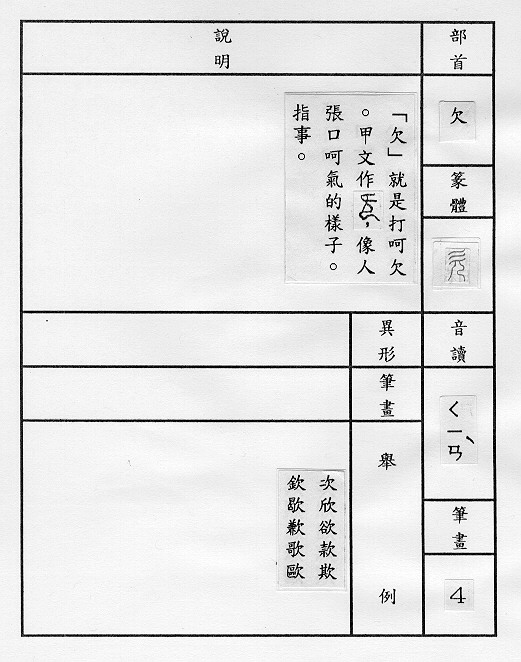 部首
欠
篆體
音讀
ㄑㄧㄢˋ
筆畫
4
說明
「欠」就是打呵欠
。甲文作,像人
張口呵氣的樣子。
指事。
異形
筆畫
舉例
次欣欲款欺
欽歇歉歌歐